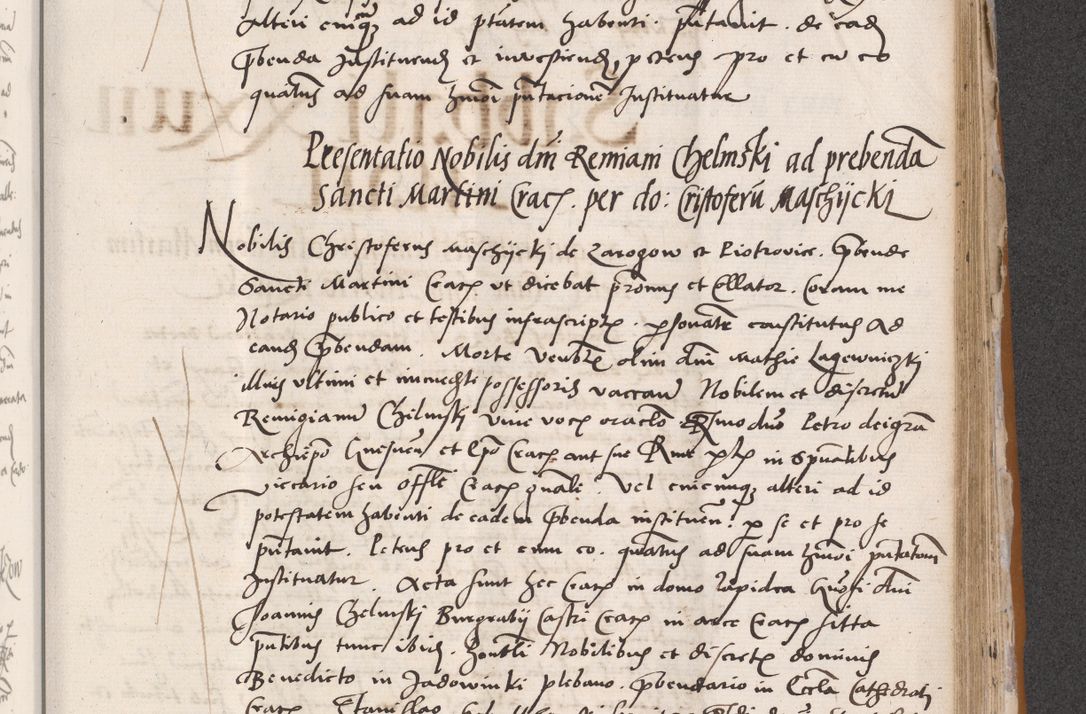 alteri cuiq ad id ptatem habenti. pntavit. de eadē
prebenda Instituendū et investiendū, petens pro et cū eo
quatenus ad suam hmoi pntacionē Instituatur
Presentatio Nobilis dni Remiani Chelmski ad prebendā
Sancti Martini Crac. per do: Cristoferū Maschijcki
Nobilis Christoferus Maschijckj de Zarogow et Piotrovice. prebende
Sancti Martini Crac ut dicebat pronus et Collator. Coram me
Notario publico et testibus infrascriptis personaliter constitutus Ad
eandē prebendam. Morte venblis olim dni Mathie Lagewniczkj
illius ultimi et immediti possessoris vaccan Nobilem et discretū
Remigianū Chelmskj vive vocis oraclo Rmo dno Petro dei grā
Archiepo Gnesnen et Epo Crac aut sue Rme ptis in Spualibus
vicario seu offle Crac gnale. vel cuicunq alteri ad id
potestatem habenti de eadem prebenda instituen. per se et pro se
pntavit. Petens pro et cum eo. quatenus ad suam hmoi pntatam
Instituatur. Acta sunt hec Crac in domo lapidea Gnosi dni
Joannis Chelmskj Burgrabij Castri Crac in arce Crac sitta
pntibus tunc ibidē. Honbli Nobilibus et discretis dominis
Benedicto in Jadowinki plebano. prebendario in Eccla Cathedrali
Crac Stanislao